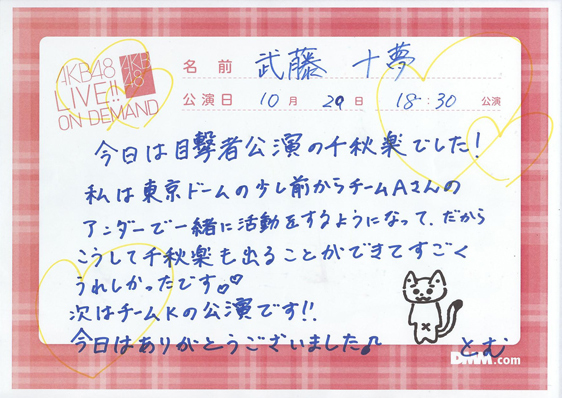 AKB48
LIVE!!
ON DEMAND
AKB
48
名前 武藤 十夢
公演日 10月 29日 18:30 公演
今日は目撃者公演の千秋楽でした!
私は東京ドームの少し前からチームAさんの
アンダーで一緒に活動をするようになって、だから
こうして千秋楽も出ることができてすごく
うれしかったです♡♡
次はチームKの公演です!!
今日はありがとうございました♪
とむ
DMM.com